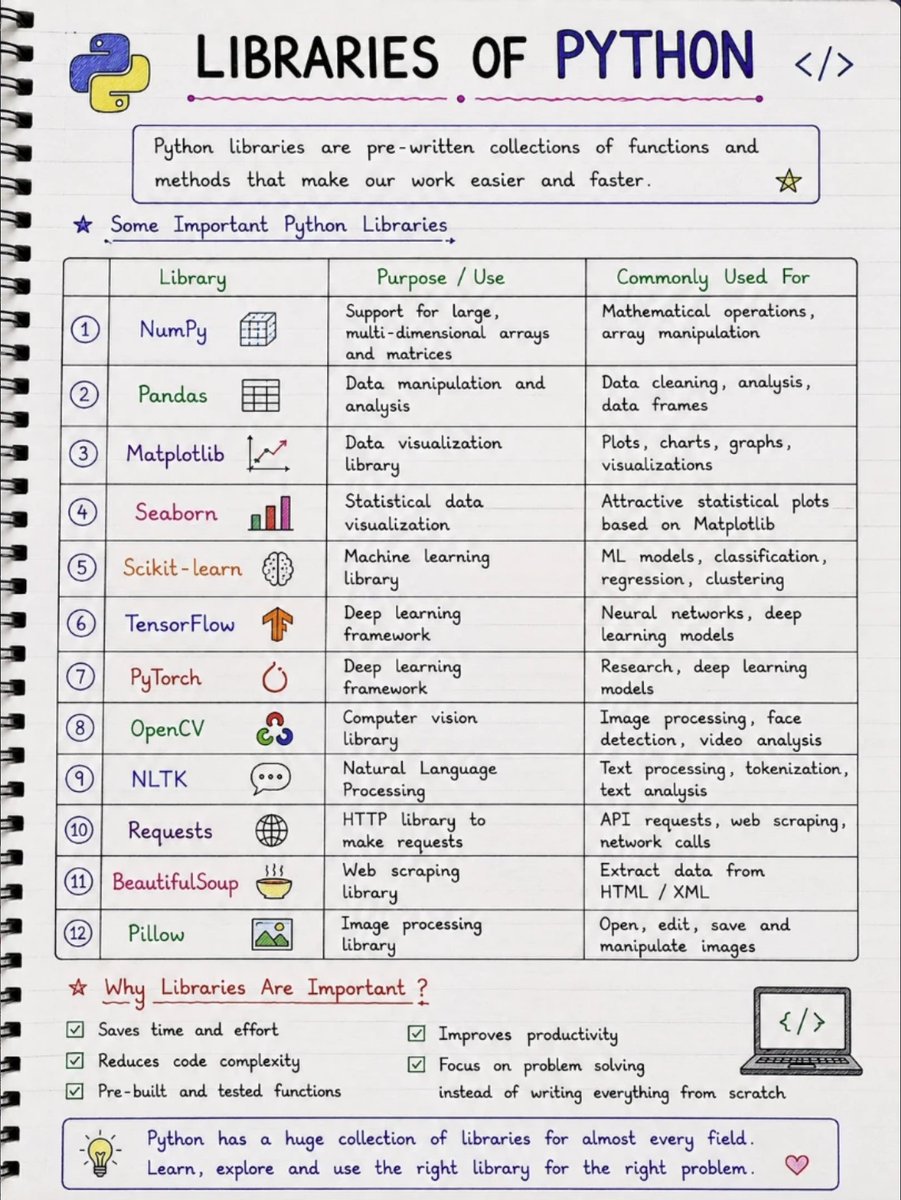 LIBRARIES OF PYTHON </>
Python libraries are pre-written collections of functions and
methods that make our work easier and faster.
Some Important Python Libraries
Library Purpose / Use Commonly Used For
1 NumPy Support for large, multi-dimensional arrays and matrices Mathematical operations, array manipulation
2 Pandas Data manipulation and analysis Data cleaning, analysis, data frames
3 Matplotlib Data visualization library Plots, charts, graphs, visualizations
4 Seaborn Statistical data visualization Attractive statistical plots based on Matplotlib
5 Scikit-learn Machine learning library ML models, classification, regression, clustering
6 TensorFlow Deep learning framework Neural networks, deep learning models
7 PyTorch Deep learning framework Research, deep learning models
8 OpenCV Computer vision library Image processing, face detection, video analysis
9 NLTK Natural Language Processing Text processing, tokenization, text analysis
10 Requests HTTP library to make requests API requests, web scraping, network calls
11 BeautifulSoup Web scraping library Extract data from HTML / XML
12 Pillow Image processing library Open, edit, save and manipulate images
Why Libraries Are Important ?
Saves time and effort
Reduces code complexity
Pre-built and tested functions
Improves productivity
Focus on problem solving
instead of writing everything from scratch
{/>
Python has a huge collection of libraries for almost every field.
Learn, explore and use the right library for the right problem.